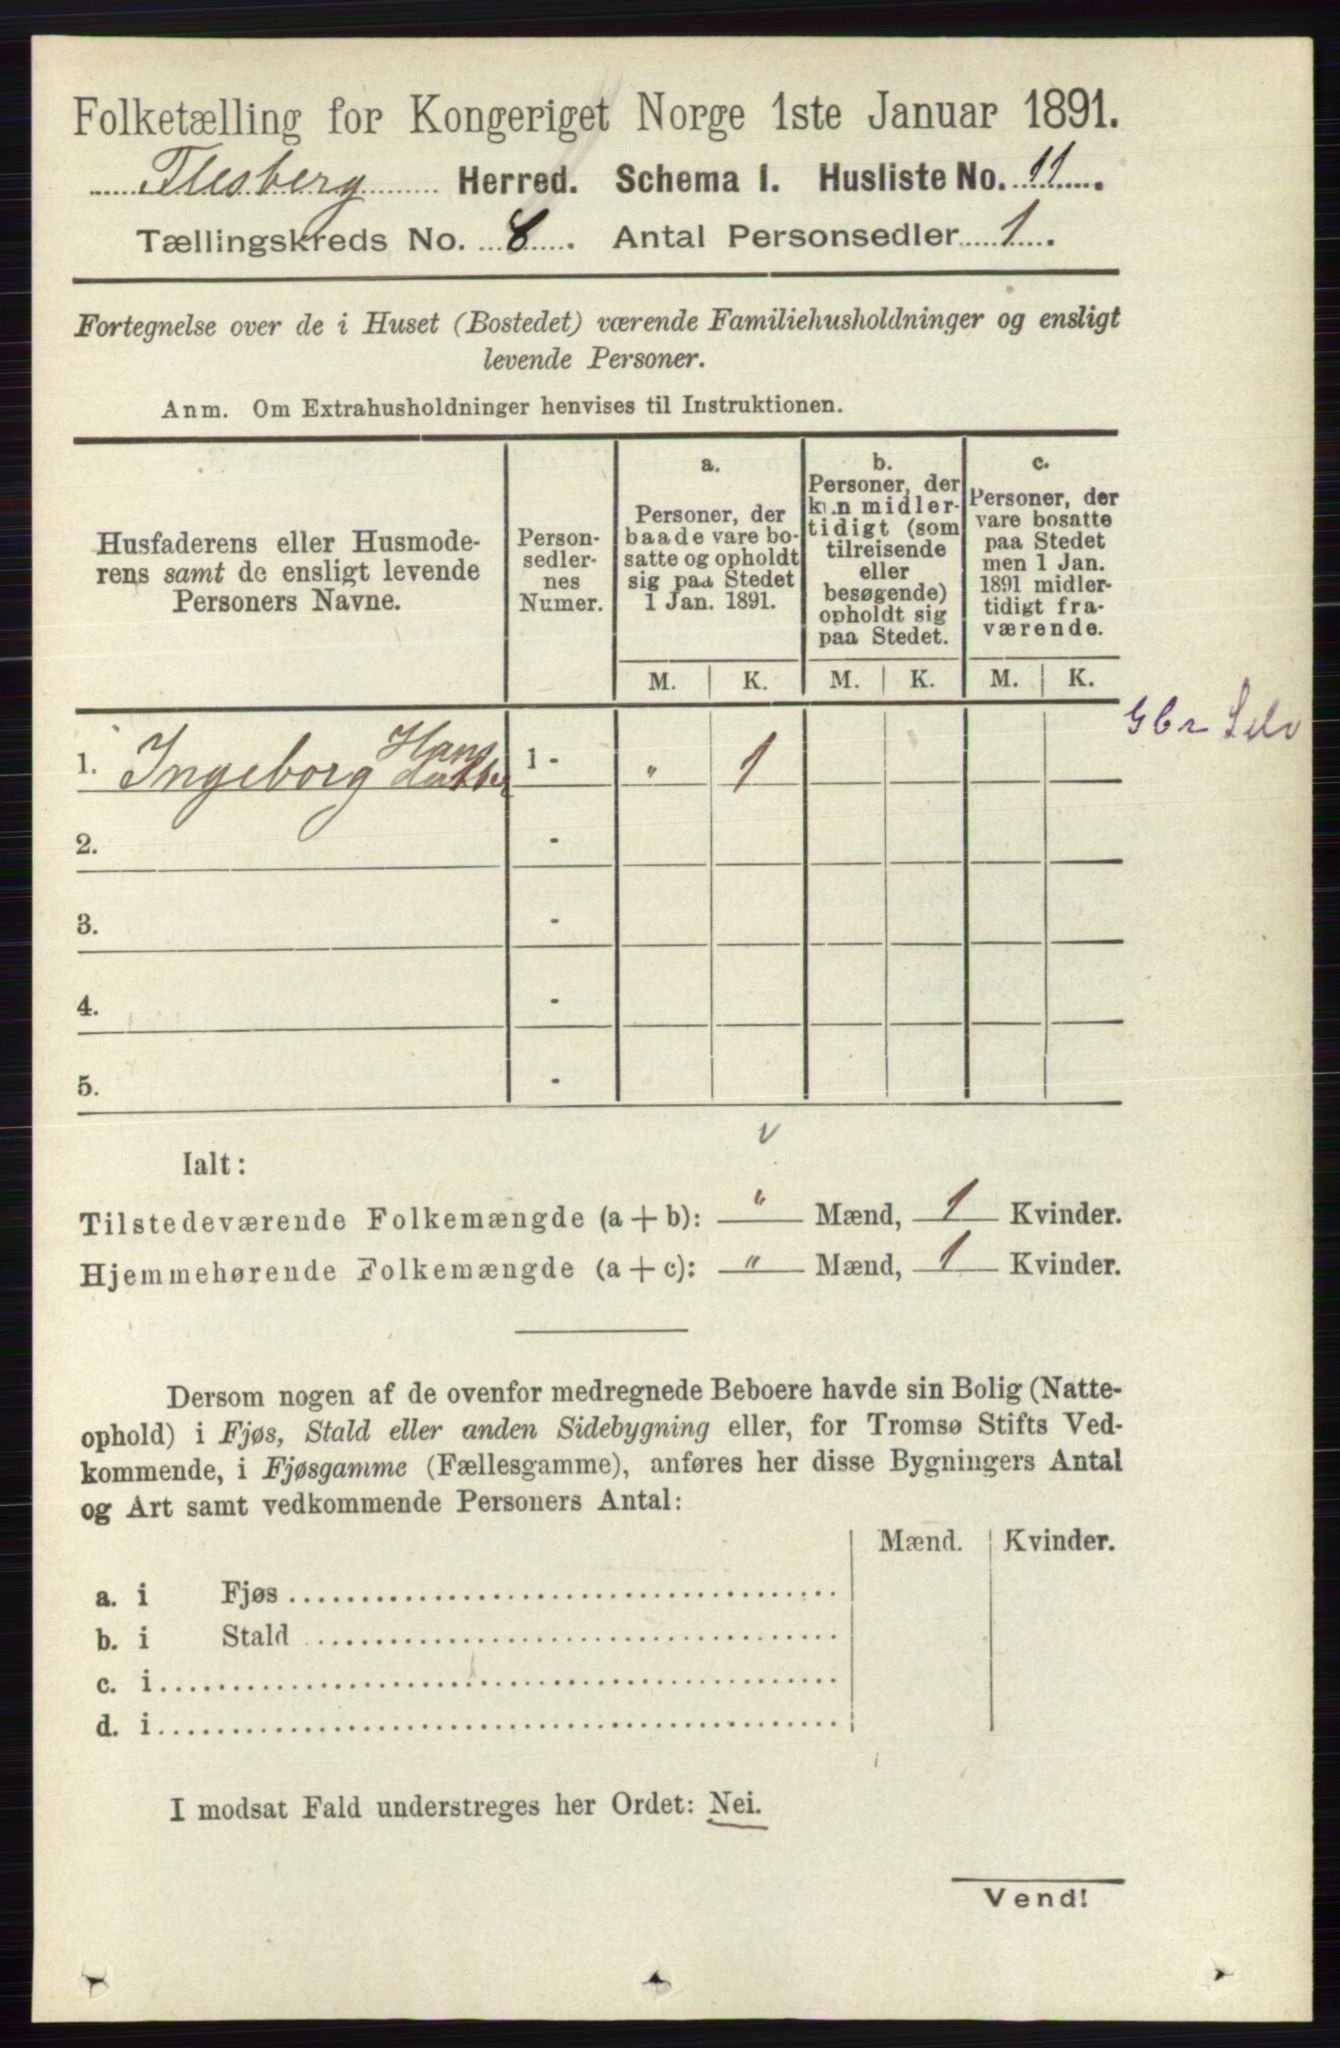 Folketælling for Kongeriget Norge 1ste Januar 1891.
Flesberg Herred. Schema I. Husliste No. 11.
Tællingskreds No. 8. Antal Personsedler 1.
Fortegnelse over de i Huset (Bostedet) værende Familiehusholdninger og ensligt
levende Personer.
Anm. Om Extrahusholdninger henvises til Instruktionen.
Husfaderens eller Husmode-
rens samt de ensligt levende
Personers Navne.
Person-
sedler-
nes
Numer.
a.
Personer, der
baade vare bo-
satte og opholdt
sig paa Stedet
1 Jan. 1891.
b.
Personer, der
kun midler-
tidigt (som
tilreisende
eller
besøgende)
opholdt sig
paa Stedet.
c.
Personer, der
vare bosatte
paa Stedet
men 1 Jan.
1891 midler-
tidigt fra-
værende.
M. K. M. K. M. K.
1. Ingeborg Hans 1 - " 1
2. -
3. -
4. -
5. -
Ialt:
Tilstedeværende Folkemængde (a + b): " Mænd, 1 Kvinder.
Hjemmehørende Folkemængde (a + c): " Mænd, 1 Kvinder.
Dersom nogen af de ovenfor medregnede Beboere havde sin Bolig (Natte-
ophold) i Fjøs, Stald eller anden Sidebygning eller, for Tromsø Stifts Ved-
kommende, i Fjøsgamme (Fællesgamme), anføres her disse Bygningers Antal
og Art samt vedkommende Personers Antal:
Mænd. Kvinder.
a. i Fjøs
b. i Stald
c. i
d. i
I modsat Fald understreges her Ordet: Nei.
Vend!